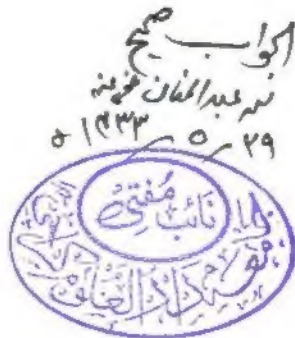 الجواب صحیح
بندہ عبدالمنان عفی عنہ
۲۹ / ۵ / ۱۴۳۳ ھ
نائب مفتی
دارالعلوم